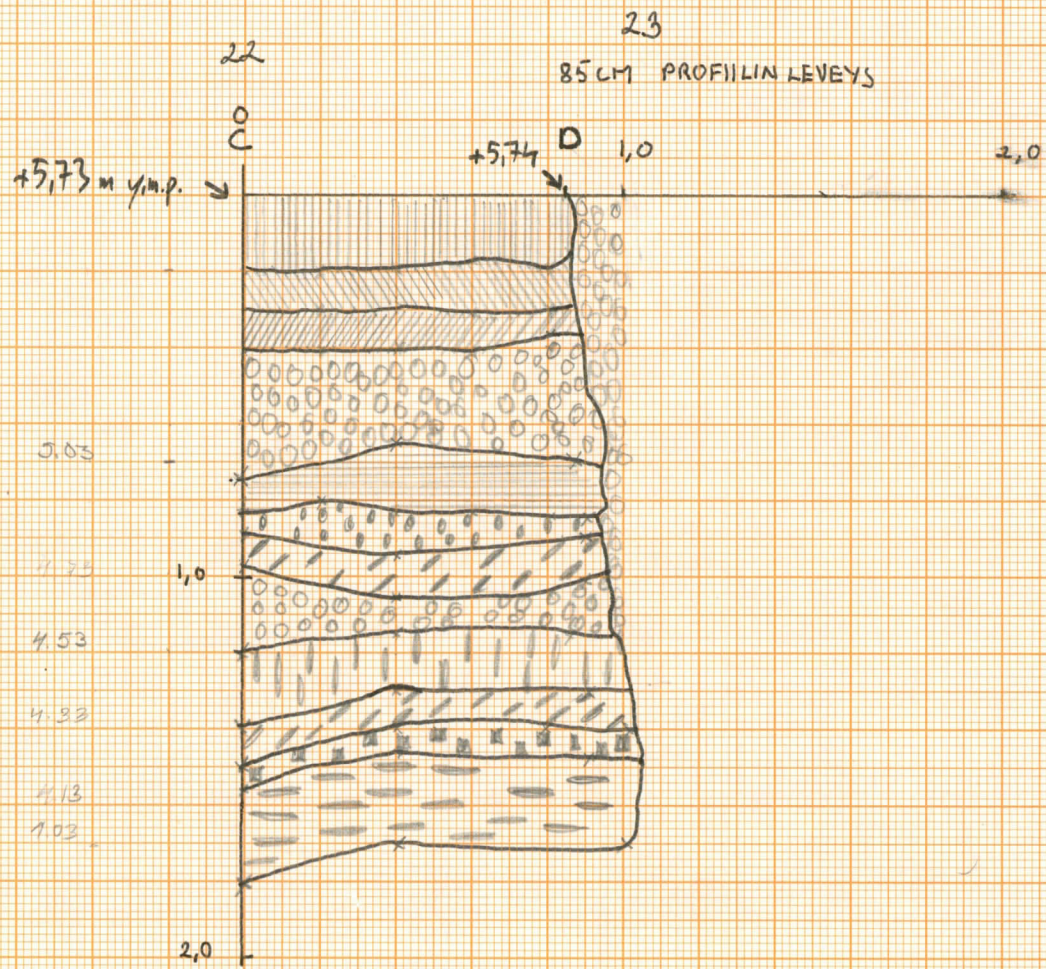 23
22
85 CM PROFIILIN LEVEYS
0
C
D
+5,74
1,0
2,0
+5,73 m y.m.p.
5.03
1,0
4.53
4.33
4.13
2,0